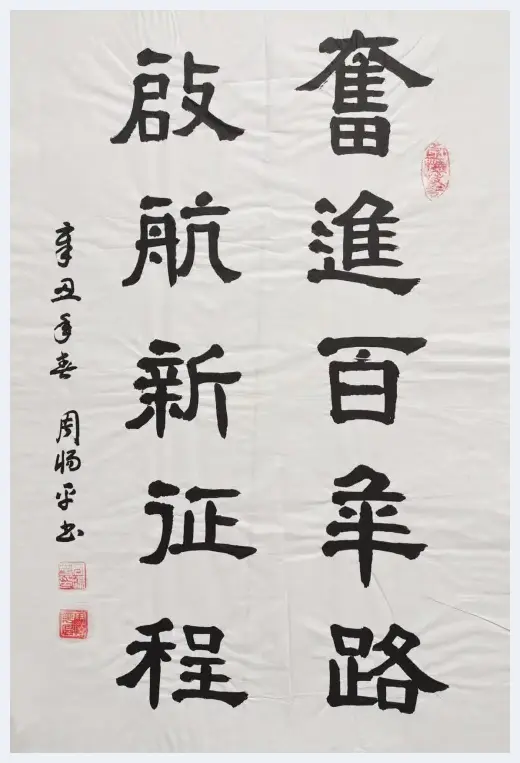 奮進百年路
啟航新征程
辛丑年春 周暢平书